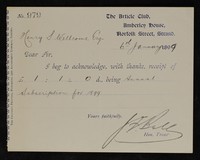 The Article Club,
Amberley House,
Norfolk Street, Strand.
Henry S. Wellcome Esq
Dear Sir,
I beg to acknowledge, with thanks, receipt of
£ 1 : 1 : 0 d. being annual
Subscription for 1899
Yours faithfully,
Hon. Treas.